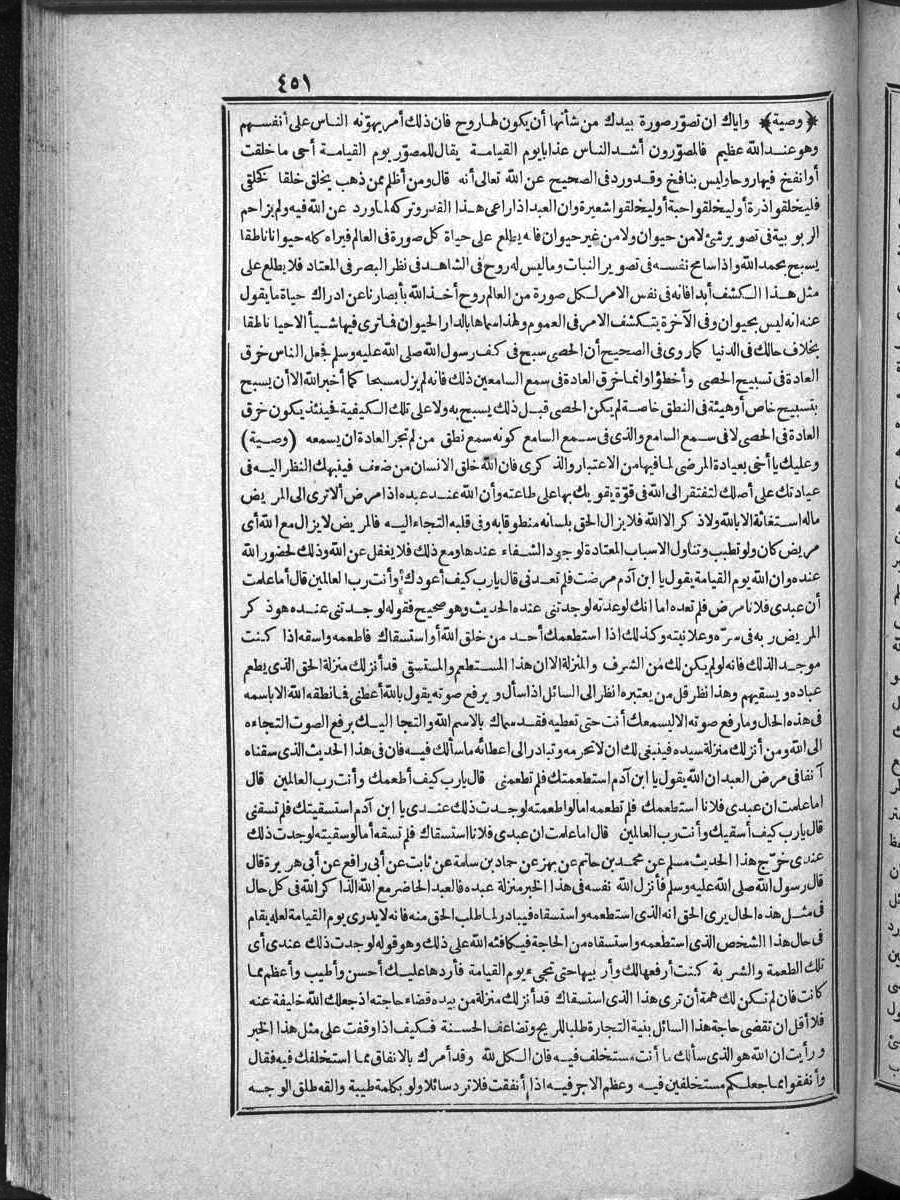 ٤٥١
﴿وصية﴾ واياك ان تصوّر صورة بيدك من شأنها أن يكون لها روح فان ذلك أمر يهوّنه الناس على أنفسهم
وهو عند الله عظيم فالمصوّرون أشد الناس عذابا يوم القيامة يقال للمصوّر يوم القيامة أحى ما خلقت
أو انفخ فيها روحا وليس بنافخ وقد ورد فى الصحيح عن الله تعالى أنه قال ومن أظلم ممن ذهب يخلق خلقا كخلقى
فليخلقوا ذرة أو ليخلقوا حبة أو ليخلقوا شعيرة وان العبد اذا راعى هذا القدر وتركه لما ورد عن الله فيه ولم يزاحم
الربوبية فى تصوير شئ لا من حيوان ولا من غير حيوان فانه يطلع على حياة كل صورة فى العالم فيراه كله حيوانا ناطقا
يسبح بحمد الله واذا سامح نفسه فى تصوير النبات وما ليس له روح فى الشاهد فى نظر البصر فى المعتاد فلا يطلع على
مثل هذا الكشف أبدا فانه فى نفس الامر لكل صورة من العالم روح أخذ الله بأبصارنا عن ادراك حياة ما يقول
عنه انه ليس بحيوان وفى الآخرة يتكشف الامر فى العموم ولهذا سماها بالدار الحيوان فما ترى فيها شيأ الا حيا ناطقا
بخلاف حالك فى الدنيا كما روى فى الصحيح أن الحصى سبح فى كف رسول الله صلى الله عليه وسلم فجعل الناس خرق
العادة فى تسبيح الحصى وأخطؤا وانما خرق العادة فى سمع السامعين ذلك فانه لم يزل مسبحا كما أخبر الله الا أن يسبح
بتسبيح خاص أو هيئة فى النطق خاصة لم يكن الحصى قبل ذلك يسبح به ولا على تلك الكيفية فحينئذ يكون خرق
العادة فى الحصى لا فى سمع السامع والذى فى سمع السامع كونه سمع نطق من لم تجر العادة ان يسمعه (وصية)
وعليك يا أخى بعيادة المرضى لما فيها من الاعتبار والذكرى فان الله خلق الانسان من ضعف فينبهك النظر اليه فى
عيادتك على أصلك لتفتقر الى الله فى قوّة يقويك بها على طاعته وأن الله عند عبده اذا مرض ألا ترى الى المريض
ماله استغاثة الا بالله ولا ذكر الا الله فلا يزال الحق بلسانه منطوقا به وفى قلبه التجاء اليه فالمريض لا يزال مع الله أى
مريض كان ولو تطبب وتناول الاسباب المعتادة لوجود الشفاء عندها ومع ذلك فلا يغفل عن الله وذلك لحضور الله
عنده وان الله يوم القيامة يقول يا ابن آدم مرضت فلم تعدنى قال يارب كيف أعودك وأنت رب العالمين قال أما علمت
أن عبدى فلانا مرض فلم تعده اما انك لو عدته لوجدتنى عنده الحديث وهو صحيح فقوله لوجدتنى عنده هو ذكر
المريض ربه فى سرّه وعلانيته وكذلك اذا استطعمك أحد من خلق الله أو استسقاك فاطعمه واسقه اذا كنت
موجد الذلك فانه لو لم يكن لك من الشرف والمنزلة الا ان هذا المستطعم والمستسقى قد أنزلك منزلة الحق الذى يطعم
عباده ويسقيهم وهذا نظر قل من يعتبره انظر الى السائل اذا سأل ويرفع صوته يقول بالله أعطنى فما نطقه الله الا باسمه
فى هذه الحال وما رفع صوته الا ليسمعك أنت حتى تعطيه فقد سماك بالاسم الله والتجا اليك برفع الصوت التجاءه
الى الله ومن أنزلك منزلة سيده فينبغى لك ان لا تحرمه وتبادر الى اعطائه ما سألك فيه فان فى هذا الحديث الذى سقناه
آنفا فى مرض العبد ان الله يقول يا ابن آدم استطعمتك فلم تطعمنى قال يارب كيف أطعمك وأنت رب العالمين قال
اما علمت ان عبدى فلانا استطعمك فلم تطعمه اما لو اطعمته لوجدت ذلك عندى يا ابن آدم استسقيتك فلم تسقنى
قال يارب كيف أسقيك وأنت رب العالمين قال اما علمت ان عبدى فلانا استسقاك فلم تسقه أما لو سقيته لوجدت ذلك
عندى خرّج هذا الحديث مسلم عن محمد بن حاتم عن بهز عن حماد بن سلمة عن ثابت عن أبى رافع عن أبى هريرة قال
قال رسول الله صلى الله عليه وسلم فأنزل الله نفسه فى هذا الخبر منزلة عبده فالعبد الحاضر مع الله الذاكر الله فى كل حال
فى مثل هذه الحال يرى الحق انه الذى استطعمه واستسقاه فيبادر لما طلب الحق منه فانه لا يدرى يوم القيامة لعله يقام
فى حال هذا الشخص الذى استطعمه واستسقاه من الحاجة فيكافئه الله على ذلك وهو قوله لوجدت ذلك عندى أى
تلك الطعمة والشربة كنت أرفعها لك وأربيها حتى تجىء يوم القيامة فأردها عليك أحسن وأطيب وأعظم مما
كانت فان لم تكن لك همة أن ترى هذا الذى استسقاك قد أنزلك منزلة من بيده قضاء حاجته اذ جعلك الله خليفة عنه
فلا أقل ان تقضى حاجة هذا السائل بنية التجارة طلبا للربح وتضاعف الحسنة فكيف اذا وقفت على مثل هذا الخبر
ورأيت ان الله هو الذى سألك ما أنت مستخلف فيه فان الكل لله وقد أمرك بالانفاق مما استخلفك فيه فقال
وأنفقوا مما جعلكم مستخلفين فيه وعظم الاجر فيه اذا أنفقت فلا ترد سائلا ولو بكلمة طيبة والقه طلق الوجه